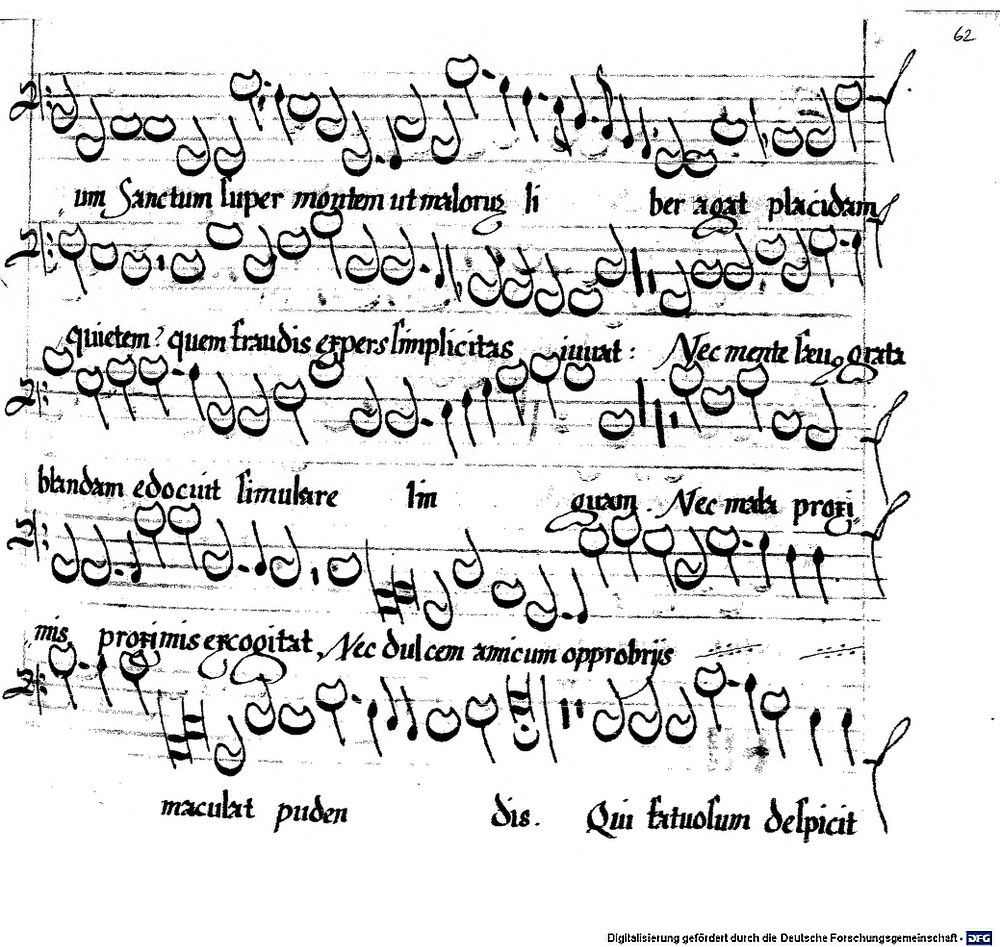 62
um Sanctum super montem ut malorum li ber agat placidam
quietem? quem fraudis expers simplicitas iuuat: Nec mente læuo grata
blandam edocuit simulare lin quam. Nec mala proxi
mis proximis excogitat, Nec dulcem amicum opprobrijs
maculat puden dis. Qui fatuosum despicit
Digitalisierung gefördert durch die Deutsche Forschungsgemeinschaft - DFG